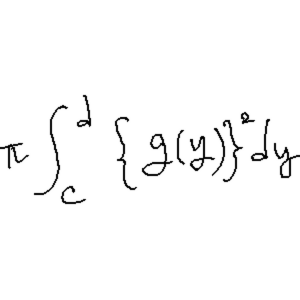 π∫_c^d {g(y)}²dy